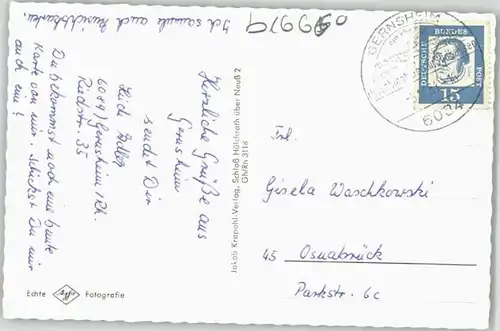 Ich sammle auch Ansichtskarten.
Herzliche Grüße aus
Gernsheim
sendet Dir
6089 Gernsheim/Rh.
Riedstr. 35
Du bekommst noch eine bunte
Karte von mir. Schickst Du mir
auch eine?
Echte Fotografie
Jakob Krapohl-Verlag, Schloß Hülchrath über Neuß 2
Gh/Rh 3116
GERNSHEIM
DEUTSCHE BUNDESPOST
15
Frl.
Gisela Waschkowski
45 Osnabrück
Parkstr. 6c